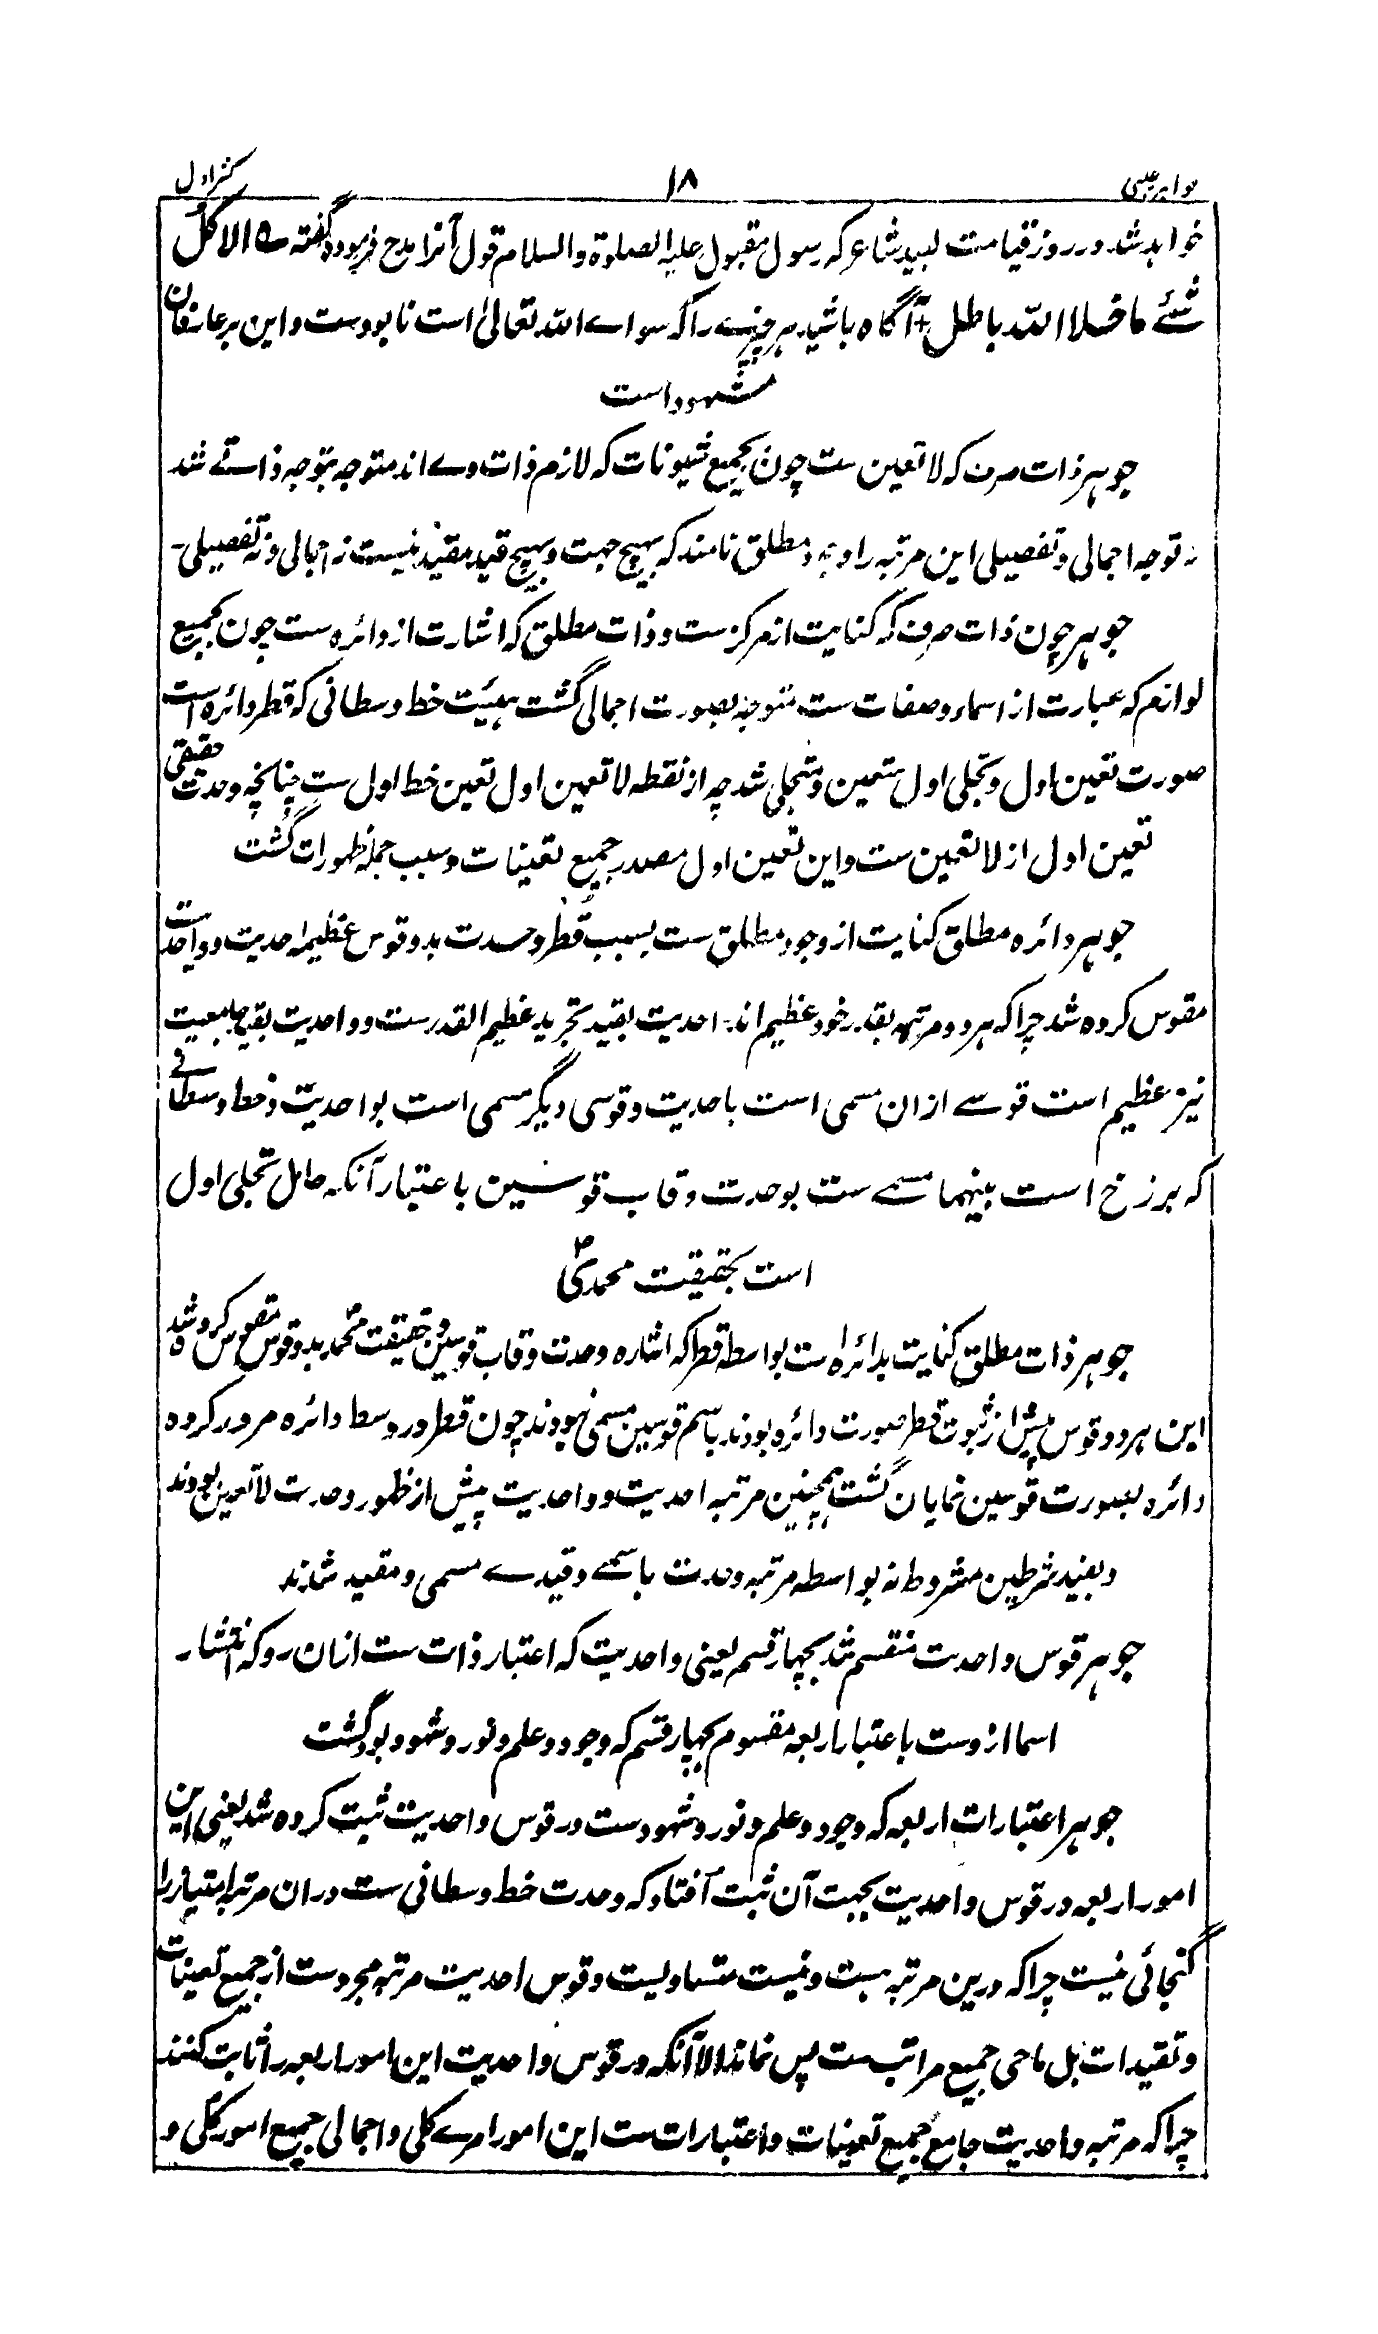 جواہر غیبی ۱۸ کنز اول
خواہد شد در روز قیامت لبید شاعر کہ رسول مقبول علیہ الصلوۃ والسلام قول آنرا مدح فرمودہ گفتہ ے الا کل
شئے ما خلا اللہ باطل + آگاہ باشید ہر چیزے را کہ سواے اللہ تعالیٰ است نابود ست و این بر عارفان
مشہود است
جوہر ذات صرف کہ لا تعین ست چون بجمیع شیونات کہ لازم ذات وے اند متوجہ بتوجہ ذاتے شد
نہ توجہ اجمالی و تفصیلی این مرتبہ را وجود مطلق نامند کہ بہیچ جہت و بہیچ قید مقید نیست نہ اجمالی و نہ تفصیلی -
جوہر چون ذات صرف کہ کنایت از مرکز ست و ذات مطلق کہ اشارت از دائرہ ست چون بجمیع
لوازم کہ عبارت از اسماء و صفات ست متوجہ بصورت اجمالی گشت بہیئت خط وسطانی کہ قطر دائرہ است
صورت تعین اول و تجلی اول متعین و متجلی شد چہ از نقطہ لا تعین اول تعین خط اول ست چنانچہ وحدت حقیقی
تعین اول از لا تعین ست و این تعین اول مصدر جمیع تعینات و سبب جملہ ظہورات گشت
جوہر دائرہ مطلق کنایت از وجود مطلق ست بسبب قطر وحدت بدو قوس عظیمہ احدیت و واحدیت
مقوس کردہ شد چرا کہ ہر دو مرتبہ بقدر خود عظیم اند احدیت بقید تجرید عظیم القدر ست و واحدیت بقید جامعیت
نیز عظیم است قوسے ازان مسمی است باحدیت و قوسی دیگر مسمی است بواحدیت و خط وسطانے
کہ برزخ است بینہما مسمے ست بوحدت و قاب قوسین باعتبار آنکہ حامل تجلی اول
است بحقیقت محمدیؐ
جوہر ذات مطلق کنایت بدائرہ است بواسطہ قطر کہ اشارہ وحدت و قاب قوسین و حقیقت محمد بدو قوس مقوس کردہ شد
این ہر دو قوس پیش از ثبوت قطر صورت دائرہ بودند باسم قوسین مسمی نبودند چون قطر در وسط دائرہ مرور کردہ
دائرہ بصورت قوسین نمایان گشت ہمچنین مرتبہ احدیت و واحدیت پیش از ظہور وحدت لا تعین بودند
و بقید شرطین مشروط نہ بواسطہ مرتبہ وحدت باسمے و قیدے مسمی و مقید شدند
جوہر قوس واحدت منقسم شد بچہار قسم یعنی واحدیت کہ اعتبار ذات ست ازان رو کہ انتشار
اسما ازوست باعتبار اربعہ مقسوم بچہار قسم کہ وجود و علم و نور و شہود بود گشت
جوہر اعتبارات اربعہ کہ وجود و علم و نور و شہود ست در قوس واحدیت ثبت کردہ شد یعنی این
امور اربعہ در قوس واحدیت بجہت آن ثبت افتاد کہ وحدت خط وسطانی ست دران مرتبہ امتیاز را
گنجائی نیست چرا کہ درین مرتبہ ہست و نیست متساویست و قوس احدیت مرتبہ مجرد ست از جمیع تعینات
و تقیدات بل ماحی جمیع مراتب ست پس نماند الا آنکہ در قوس واحدیت این امور اربعہ را ثابت کنند
چرا کہ مرتبہ واحدیت جامع جمیع تعینات و اعتبارات ست این امور امرے کلی و اجمالی جمیع امور کلی و